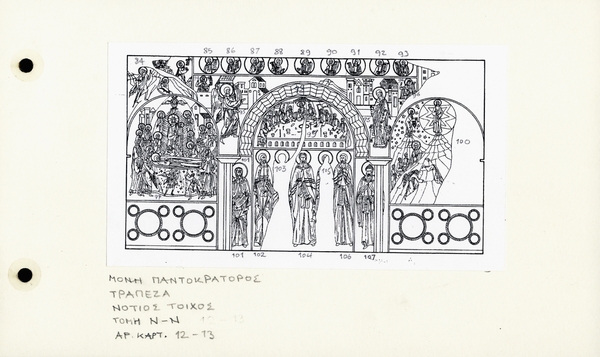 85 86 87 88 89 90 91 92 93
84
100
103 105
101 102 104 106 107
ΜΟΝΗ ΠΑΝΤΟΚΡΑΤΟΡΟΣ
ΤΡΑΠΕΖΑ
ΝΟΤΙΟΣ ΤΟΙΧΟΣ
ΤΟΜΗ Ν-Ν
ΑΡ. ΚΑΡΤ. 12-13